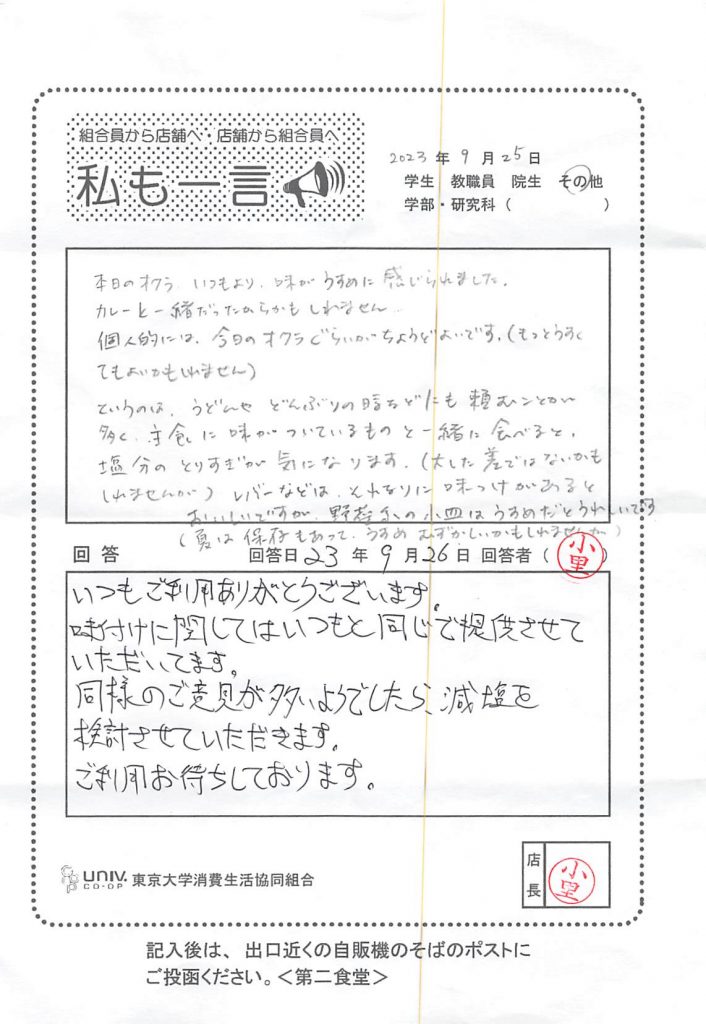 組合員から店舗へ・店舗から組合員へ
私も一言
2023年9月25日
学生 教職員 院生 その他
学部・研究科( )
本日のオクラ、いつもより、味がうすめに感じられました。
カレーと一緒だったからかもしれません。
個人的には、今日のオクラぐらいがちょうどよいです。(もっとうすく
てもよいかもしれません)
というのは、うどんや どんぶりの時などにも頼むことが
多く、主食に味がついているものと一緒に食べると、
塩分のとりすぎが気になります。(大した差ではないかも
しれませんが) レバーなどは、それなりに味つけがあると
おいしいですが、野菜系の小皿はうすめだとうれしいです
(夏は保存もあって、うすめ むずかしいかもしれませんが)
回答 回答日23年9月26日 回答者(小里)
いつもご利用ありがとうございます。
味付けに関してはいつもと同じで提供させて
いただいてます。
同様のご意見が多いようでしたら、減塩を
検討させていただきます。
ご利用お待ちしております。
UNIV. CO-OP 東京大学消費生活協同組合
店長 小里
記入後は、出口近くの自販機のそばのポストに
ご投函ください。<第二食堂>